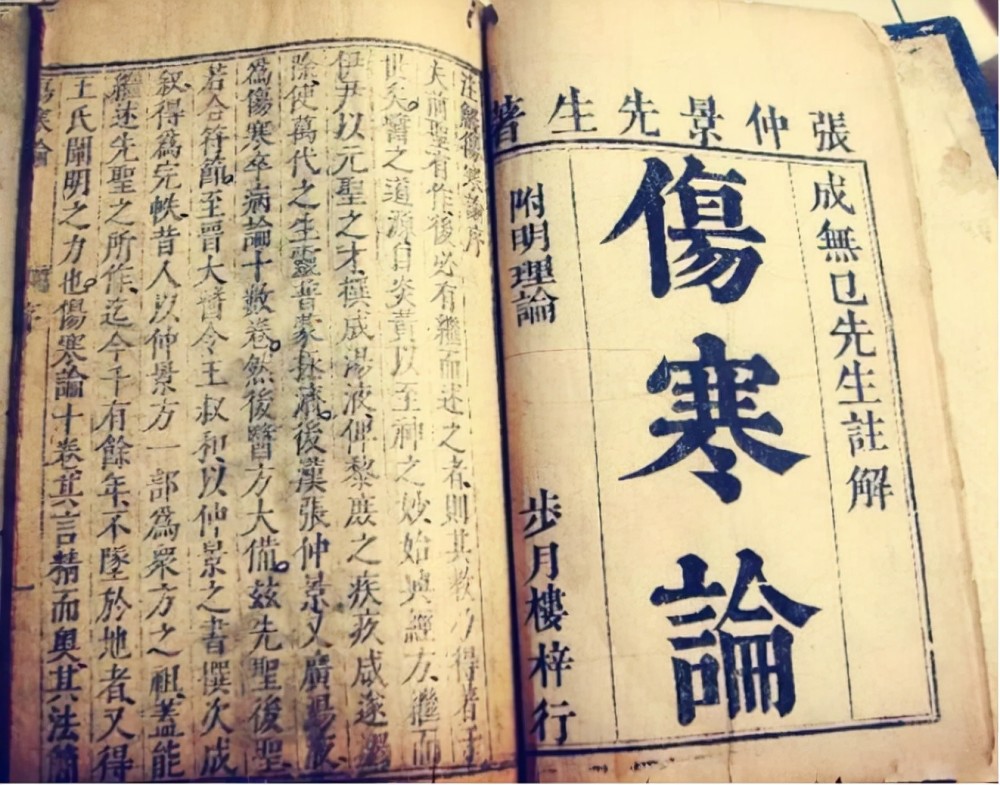 張仲景先生著
成無已先生註解
傷寒論
附明理論
步月樓梓行
注解傷寒論序
夫前聖有作後必有繼而述之者則其教乃得著于
世矣。醫之道源自炎黃以至神之妙始興經方繼而
伊尹以元聖之才撰成湯液俾黎庶之疾疚咸遂蠲
除使萬代之生靈普蒙拯濟。後漢張仲景又廣湯液
爲傷寒卒病論十數卷。然後醫方大備。茲先聖後聖
若合符節。至晉大醫令王叔和以仲景之書撰次成
叙得爲完帙昔人以仲景方一部爲衆方之祖蓋能
繼述先聖之所作迄今千有餘年不墜於地者又得
王氏闡明之力也。傷寒論十卷其言精而奥其法簡
傷寒論